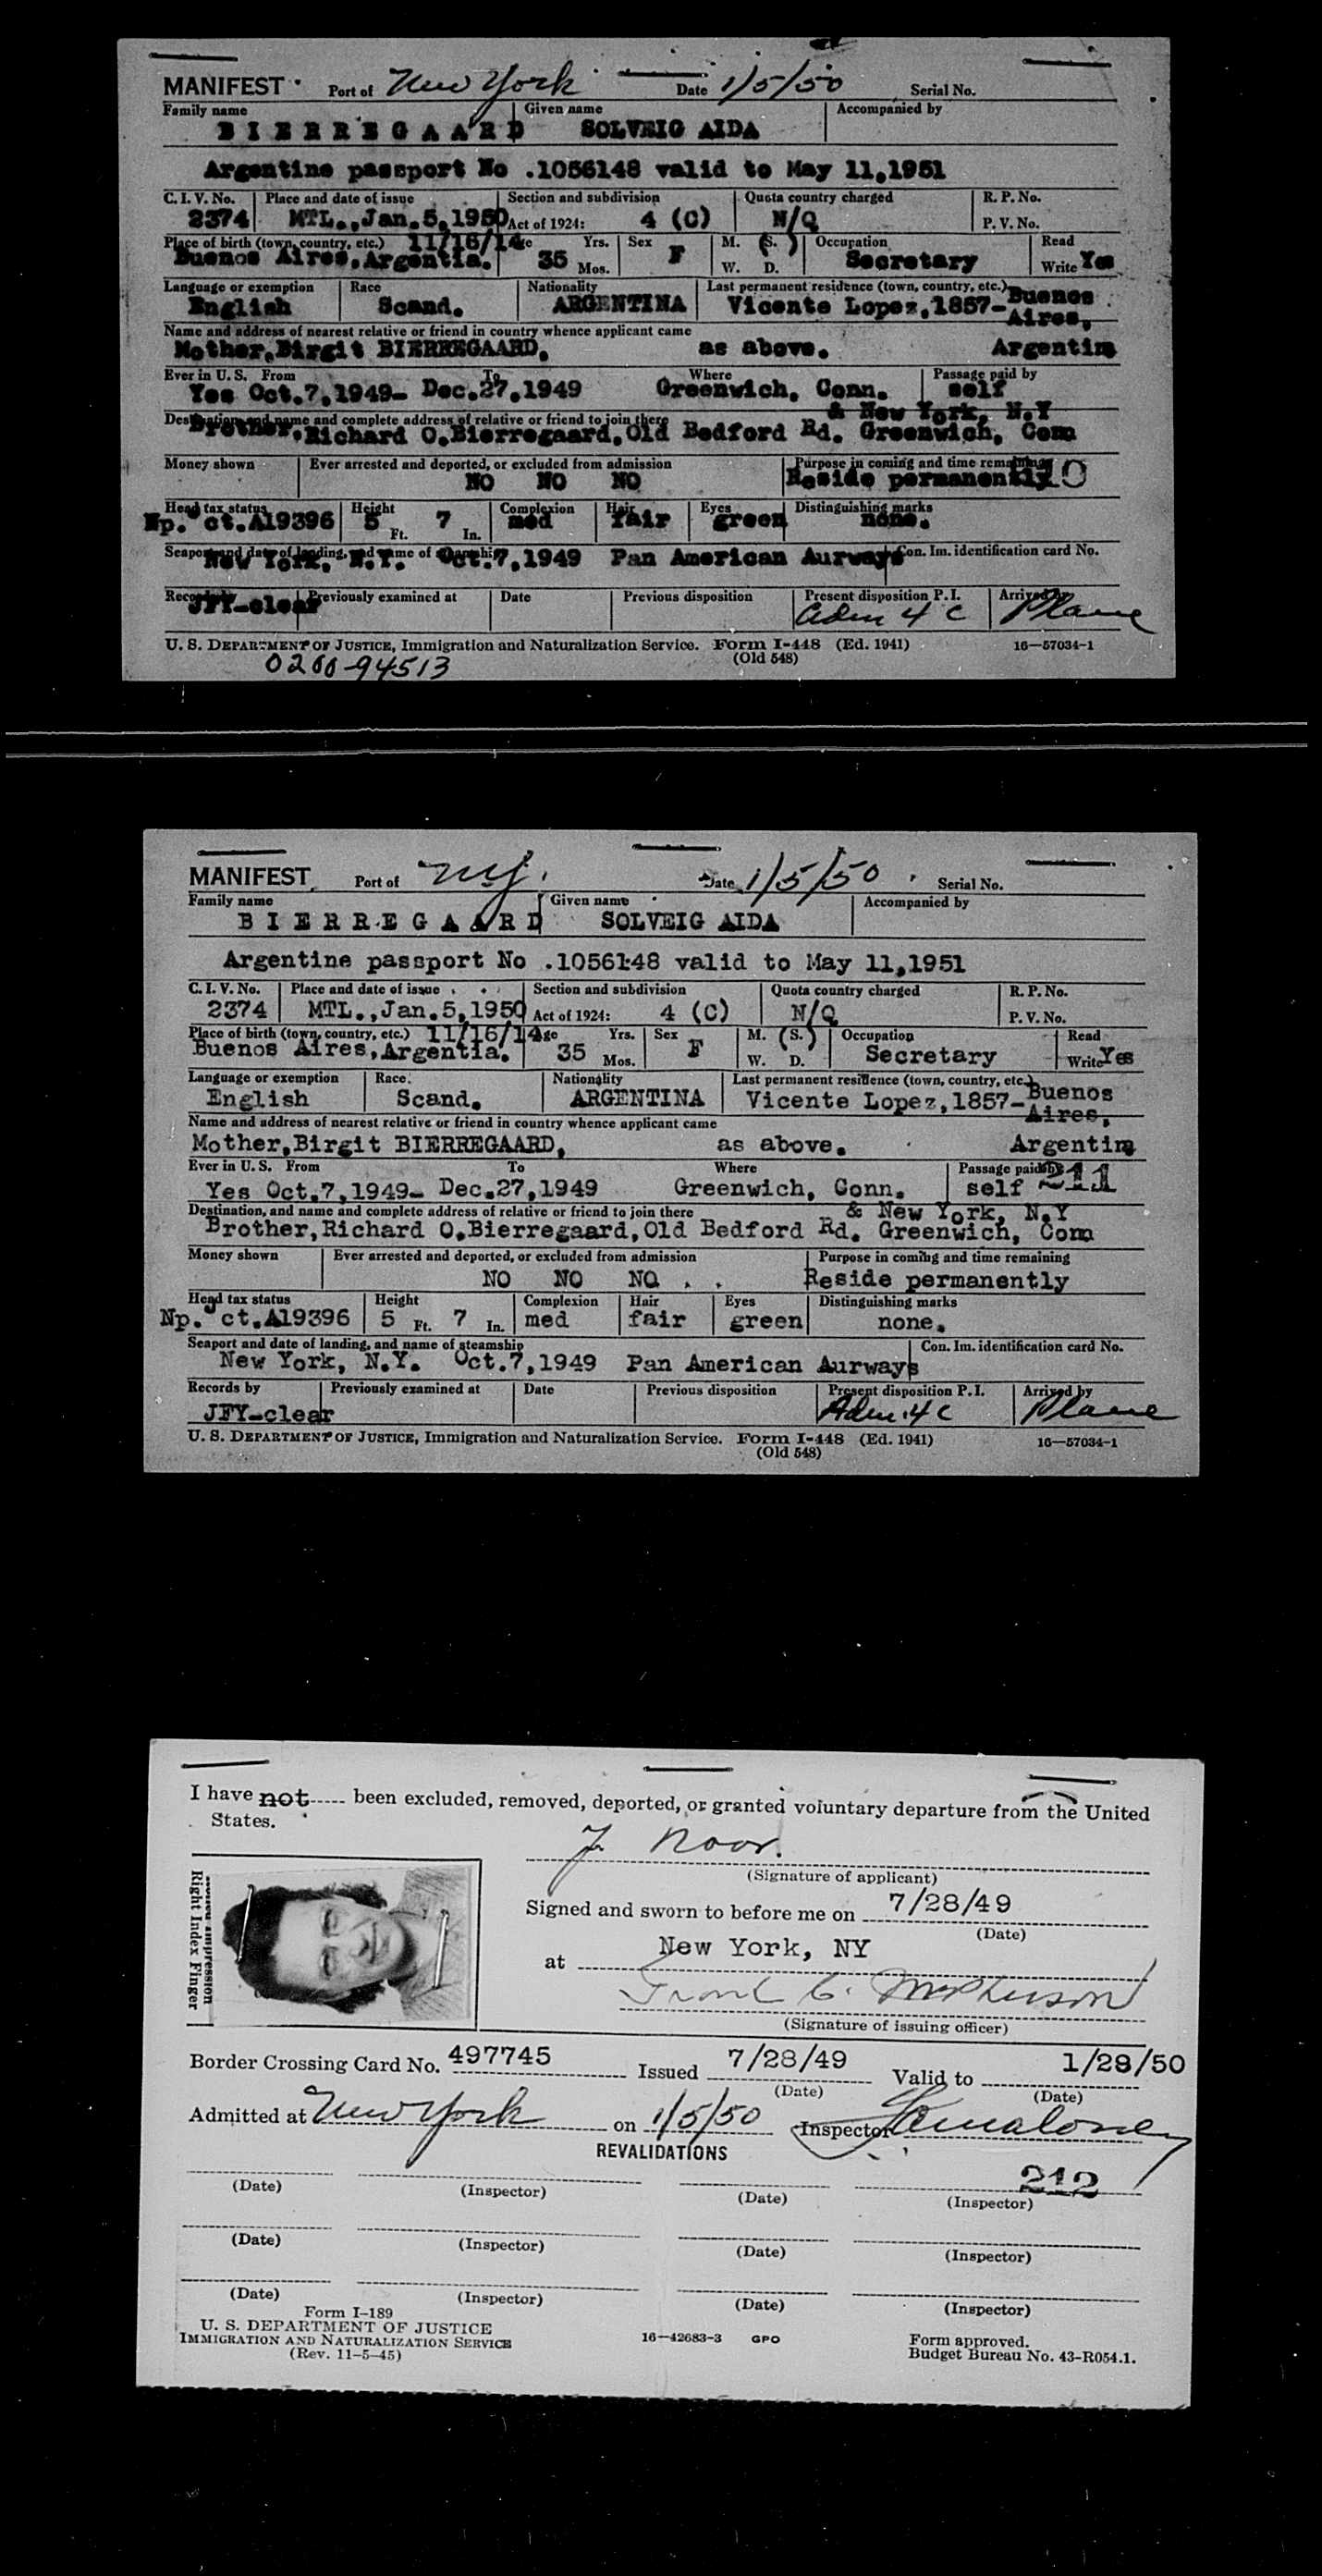 MANIFEST Port of New York Date 1/5/50 Serial No.
Family name Given name Accompanied by
BIERREGAARD SOLVEIG AIDA
Argentine passport No .1056148 valid to May 11,1951
C. I. V. No. Place and date of issue Section and subdivision Quota country charged R. P. No.
2374 MTL.,Jan.5,1950 Act of 1924: 4 (C) N/Q P. V. No.
Place of birth (town, country, etc.) 11/16/14 Age Yrs. Sex M. (S.) Occupation Read
Buenos Aires,Argentia. 35 Mos. F W. D. Secretary Write Yes
Language or exemption Race Nationality Last permanent residence (town, country, etc.) Buenos
English Scand. ARGENTINA Vicente Lopez,1857- Aires,
Name and address of nearest relative or friend in country whence applicant came
Mother,Birgit BIERREGAARD, as above. Argentin
Ever in U. S. From To Where Passage paid by
Yes Oct.7,1949- Dec.27,1949 Greenwich, Conn. self
Destination, and name and complete address of relative or friend to join there & New York, N.Y
Brother,Richard O.Bierregaard,Old Bedford Rd. Greenwich, Conn
Money shown Ever arrested and deported, or excluded from admission Purpose in coming and time remaining
NO NO NO Reside permanently
Head tax status Height Complexion Hair Eyes Distinguishing marks
Np. ct.A19396 5 Ft. 7 In. med fair green none.
Seaport and date of landing, and name of steamship Con. Im. identification card No.
New York, N.Y. Oct.7,1949 Pan American Aurways
Records by Previously examined at Date Previous disposition Present disposition P. I. Arrived by
JFY-clear Adm 4 C Plane
U. S. DEPARTMENT OF JUSTICE, Immigration and Naturalization Service. Form I-448 (Ed. 1941) 16—57034-1
(Old 548)
0200-94513
MANIFEST Port of N.Y. Date 1/5/50 Serial No.
Family name Given name Accompanied by
BIERREGAARD SOLVEIG AIDA
Argentine passport No .1056148 valid to May 11,1951
C. I. V. No. Place and date of issue Section and subdivision Quota country charged R. P. No.
2374 MTL.,Jan.5,1950 Act of 1924: 4 (C) N/Q P. V. No.
Place of birth (town, country, etc.) 11/16/14 Age Yrs. Sex M. (S.) Occupation Read
Buenos Aires,Argentia. 35 Mos. F W. D. Secretary Write Yes
Language or exemption Race Nationality Last permanent residence (town, country, etc.) Buenos
English Scand. ARGENTINA Vicente Lopez,1857- Aires,
Name and address of nearest relative or friend in country whence applicant came
Mother,Birgit BIERREGAARD, as above. Argentin
Ever in U. S. From To Where Passage paid by 211
Yes Oct.7,1949- Dec.27,1949 Greenwich, Conn. self
Destination, and name and complete address of relative or friend to join there & New York, N.Y
Brother,Richard O.Bierregaard,Old Bedford Rd. Greenwich, Conn
Money shown Ever arrested and deported, or excluded from admission Purpose in coming and time remaining
NO NO NO Reside permanently
Head tax status Height Complexion Hair Eyes Distinguishing marks
Np. ct.A19396 5 Ft. 7 In. med fair green none.
Seaport and date of landing, and name of steamship Con. Im. identification card No.
New York, N.Y. Oct.7,1949 Pan American Aurways
Records by Previously examined at Date Previous disposition Present disposition P. I. Arrived by
JFY-clear Adm. 4 C Plane
U. S. DEPARTMENT OF JUSTICE, Immigration and Naturalization Service. Form I-448 (Ed. 1941) 16—57034-1
(Old 548)
I have not been excluded, removed, deported, or granted voluntary departure from the United
States.
J. Noor.
(Signature of applicant)
Right Index Finger
Signed and sworn to before me on 7/28/49
(Date)
at New York, NY
Frank C. McPherson
(Signature of issuing officer)
Border Crossing Card No. 497745 Issued 7/28/49 Valid to 1/28/50
(Date) (Date)
Admitted at New York on 1/5/50 Inspector
REVALIDATIONS
212
(Date) (Inspector) (Date) (Inspector)
(Date) (Inspector) (Date) (Inspector)
(Date) (Inspector) (Date) (Inspector)
Form I-189
U. S. DEPARTMENT OF JUSTICE
IMMIGRATION AND NATURALIZATION SERVICE
(Rev. 11-5-45)
16—42683-3 GPO
Form approved.
Budget Bureau No. 43-R054.1.